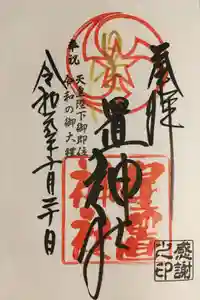 奉拝
置神社
星置神社
奉祝 天皇陛下御即位
令和の御大禮
令和元年十月二十日
感謝之印